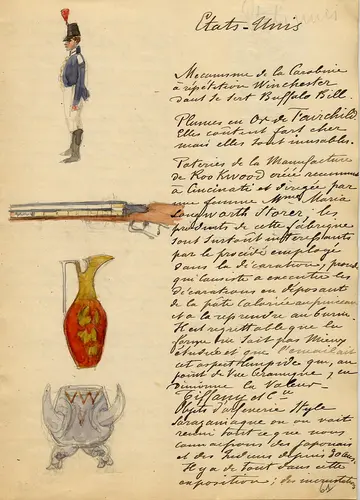 Etats-Unis
Mecanisme de la Carabine
à répétition Winchester
dont se sert Buffalo Bill.
Plumes en Or de Fairchild
Elles coutent fort cher
mais elles sont inusables.
Poteries de la Manufacture
de Rookwood créée recemment
à Cincinati et dirigée par
une femme Mme Maria
Longworth Storer; les
produits de cette fabrique
sont surtout intéressants
par le procédé employé
dans la décoration, procédé
qui consiste a executer les
décorations en déposant
de la pâte colorée au pinceau
et a la reprendre au burin.
Il est regrettable que la
forme ne soit pas mieux
étudiée et que l'émail ait
cet aspect limpide qui, au
point de vue céramique, en
diminue la valeur
Tiffany et Cie
Objets d'orfèvrerie Style
Saracenaque on on voit
réuni tout ce que nous
connaissons des Japonais
et des Indiens depuis 20 ans
Il y a de tout dans cette
exposition; des incrustations